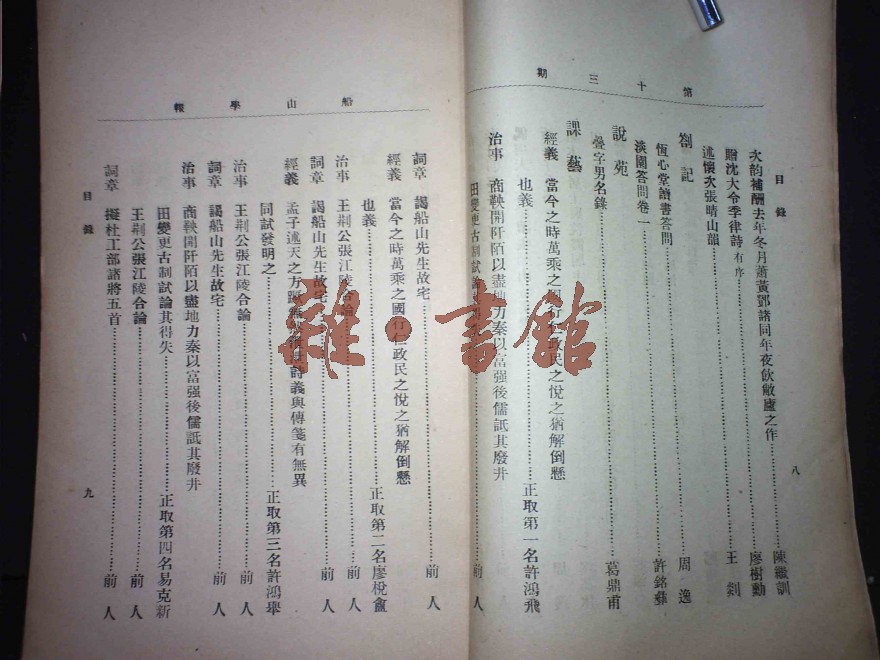 第十三期
目錄
八
次韵補酬去年冬月蕭黃鄧諸同年夜飲敝廬之作……陳繼訓
贈沈大令季律詩有序……廖樹勳
述懷次張晴山韻……王剡
劄記
恆心堂讀書答問……周逸
淡園答問卷一……許銘彝
說苑
疊字男名錄……葛鼎甫
課藝
經義 當今之時萬乘之國行仁政民之悅之猶解倒懸
也義……正取第一名許鴻飛
治事 商鞅開阡陌以盡地力秦以富强後儒詆其廢井
田變更古制試論其……前人
船山學報
詞章 謁船山先生故宅……前人
經義 當今之時萬乘之國行仁政民之悅之猶解倒懸
也義……正取第二名廖梲龕
治事 王荆公張江陵合論……前人
詞章 謁船山先生故宅……前人
經義 孟子述天之方蹶無然泄泄詩義與傳箋有無異
同試發明之……正取第三名許鴻舉
治事 王荆公張江陵合論……前人
詞章 謁船山先生故宅……前人
治事 商鞅開阡陌以盡地力秦以富强後儒詆其廢井
田變更古制試論其得失……正取第四名易克新
王荆公張江陵合論……前人
詞章 擬杜工部諸將五首……前人
目錄
九
雜·書館